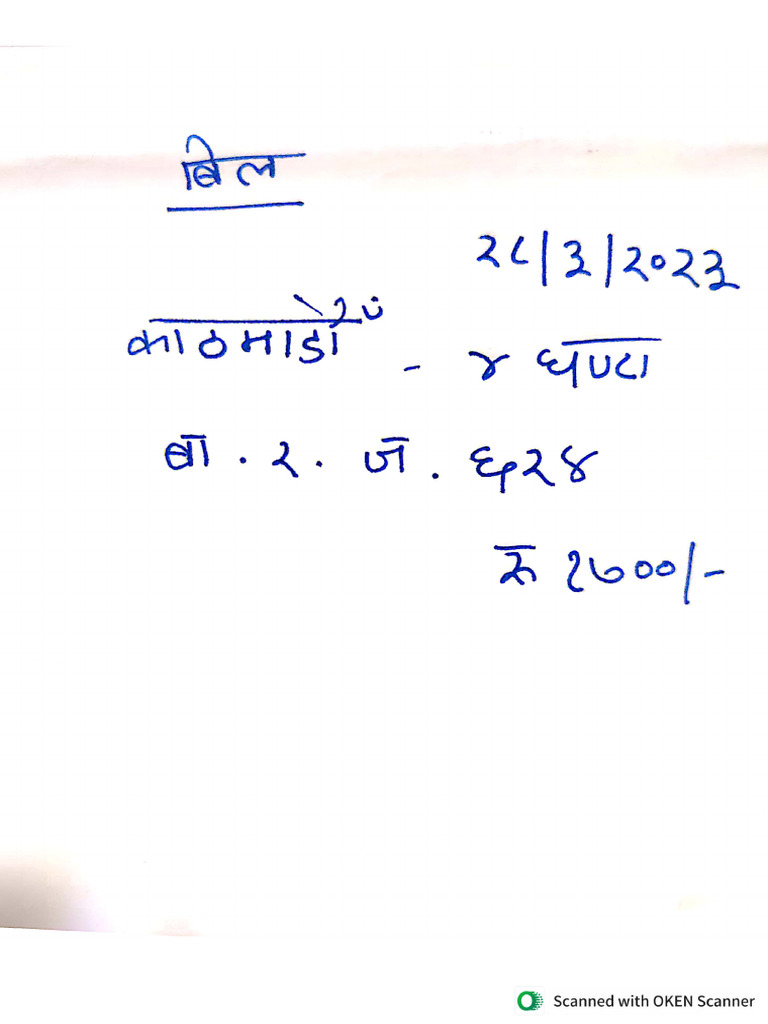 बिल
२८/३/२०२३
काठमाडौं - ४ घण्टा
बा. २. ज. ६२४
रु १७००/-
Scanned with OKEN Scanner